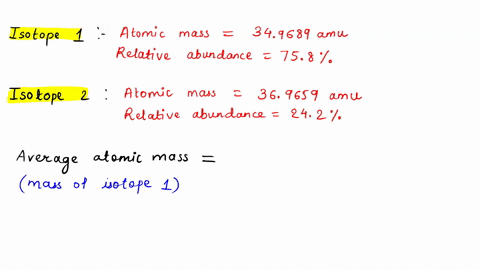 Isotope 1 :- Atomic mass = 34.9689 amu
Relative abundance = 75.8%
Isotope 2 : Atomic mass = 36.9659 amu
Relative abundance = 24.2%
Average atomic mass =
(mass of isotope 1)